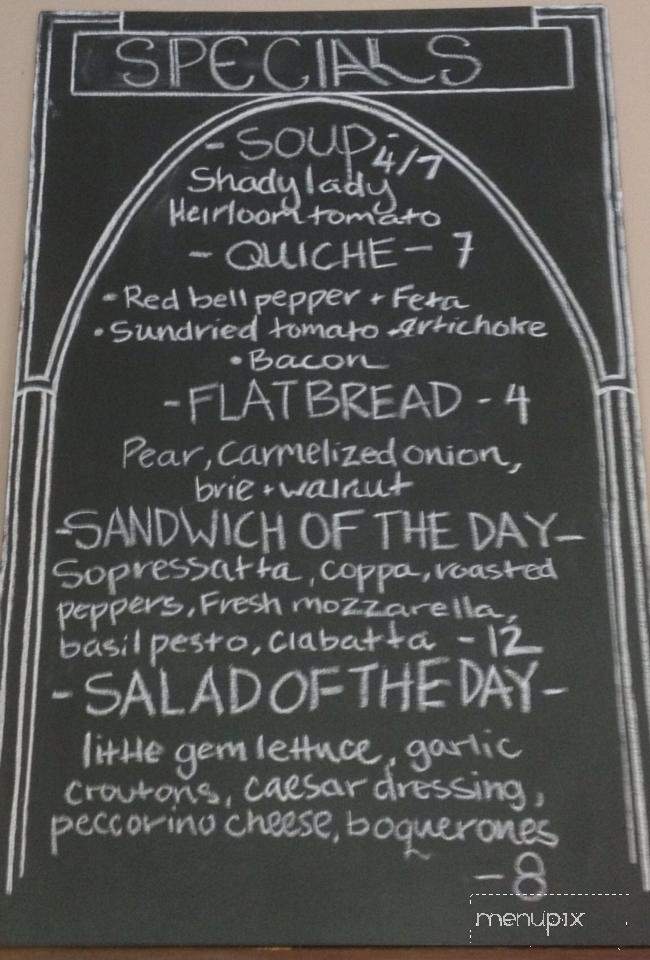 SPECIALS
- SOUP -
4/7
Shady lady
Heirloom tomato
- QUICHE - 7
• Red bell pepper + Feta
• Sundried tomato - artichoke
• Bacon
- FLATBREAD - 4
Pear, carmelized onion,
brie + walnut
- SANDWICH OF THE DAY -
Sopressatta, coppa, roasted
peppers, Fresh mozzarella,
basil pesto, ciabatta - 12
- SALAD OF THE DAY -
little gem lettuce, garlic
croutons, caesar dressing,
peccorino cheese, boquerones
- 8
menupix